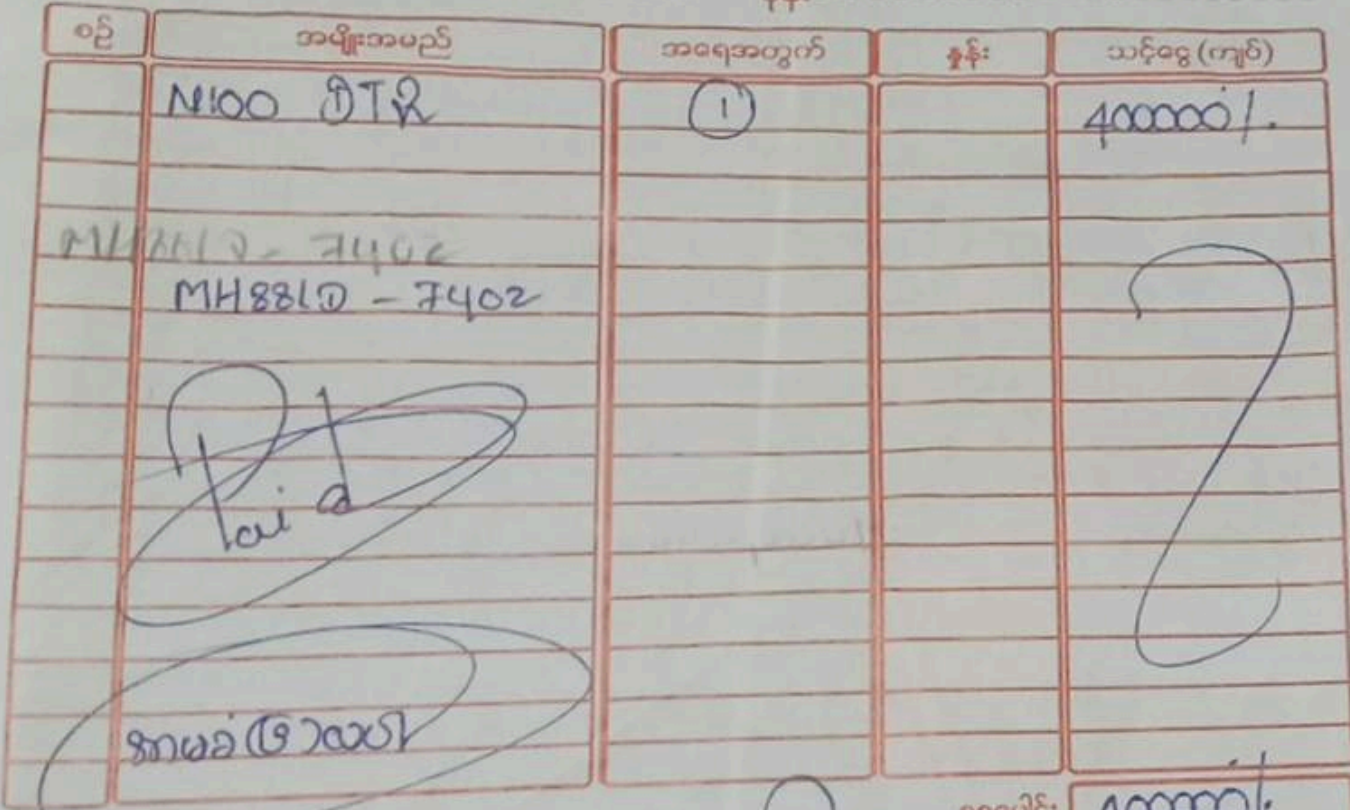 စဉ် အမျိုးအမည် အရေအတွက် နှုန်း သင့်ငွေ (ကျပ်)
N100 DTR 1 400000/.
MH881D - 7402
Paid
400000/.